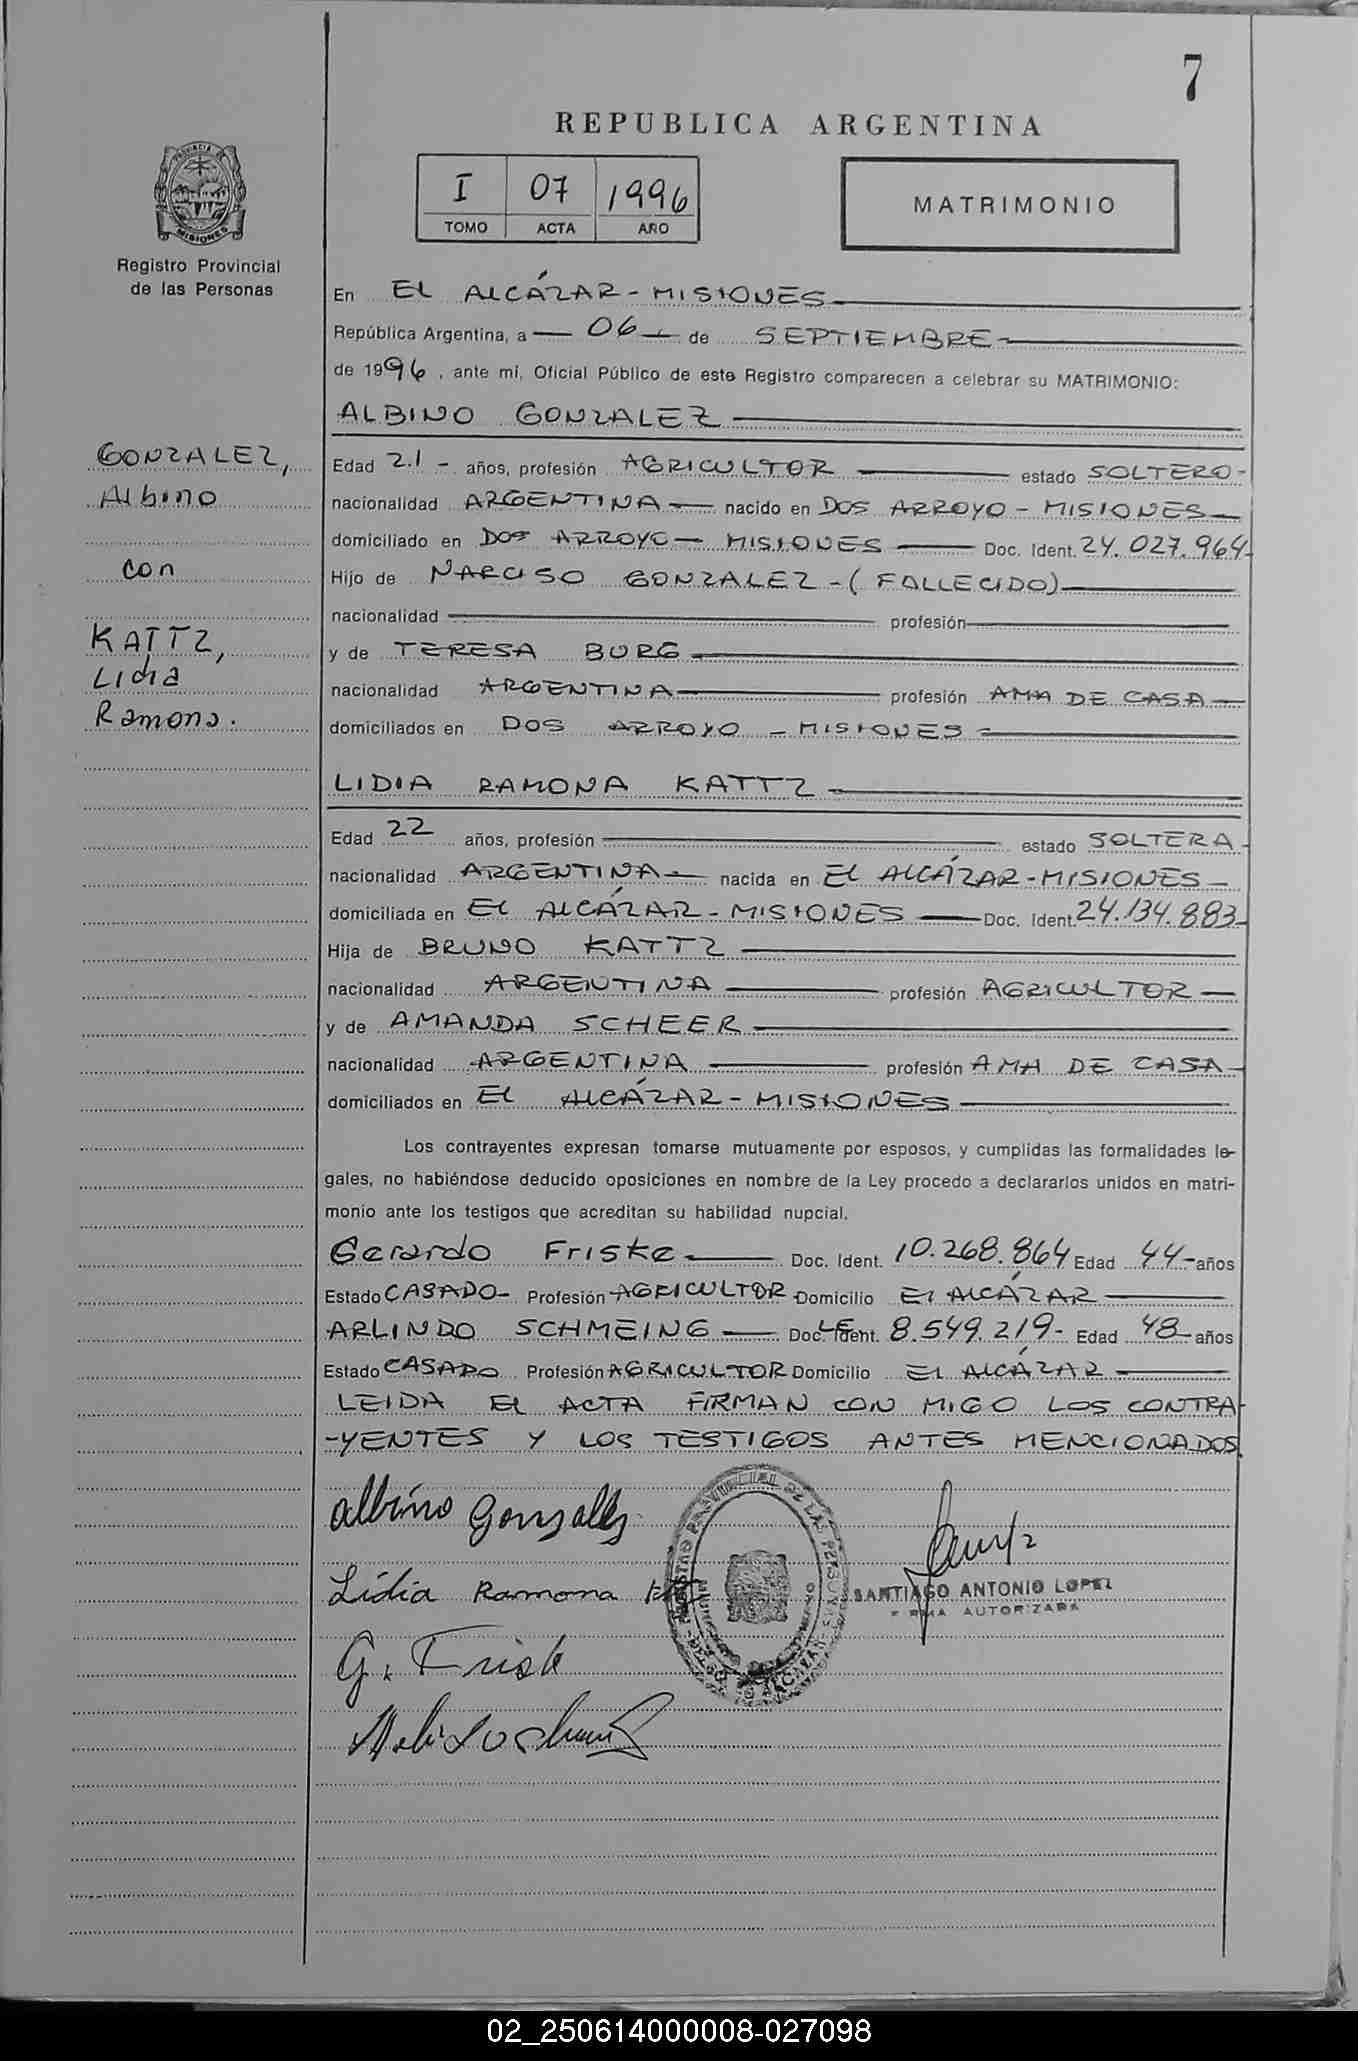 7
REPUBLICA ARGENTINA
I 07 1996
TOMO ACTA AÑO
MATRIMONIO
PROVINCIA DE MISIONES
Registro Provincial
de las Personas
En EL ALCÁZAR - MISIONES
República Argentina, a 06 de SEPTIEMBRE
de 1996, ante mí, Oficial Público de este Registro comparecen a celebrar su MATRIMONIO:
ALBINO GONZALEZ
GONZALEZ,
Albino
con
KATTZ,
Lidia
Ramona.
Edad 21 - años, profesión AGRICULTOR estado SOLTERO-
nacionalidad ARGENTINA nacido en DOS ARROYO - MISIONES
domiciliado en DOS ARROYO - MISIONES Doc. Ident. 24.027.964-
Hijo de NARCISO GONZALEZ - (FALLECIDO)
nacionalidad profesión
y de TERESA BURG
nacionalidad ARGENTINA profesión AMA DE CASA
domiciliados en DOS ARROYO - MISIONES
LIDIA RAMONA KATTZ
Edad 22 años, profesión estado SOLTERA-
nacionalidad ARGENTINA nacida en EL ALCÁZAR - MISIONES -
domiciliada en EL ALCÁZAR - MISIONES Doc. Ident. 24.134.883-
Hija de BRUNO KATTZ
nacionalidad ARGENTINA profesión AGRICULTOR
y de AMANDA SCHEER
nacionalidad ARGENTINA profesión AMA DE CASA
domiciliados en EL ALCÁZAR - MISIONES
Los contrayentes expresan tomarse mutuamente por esposos, y cumplidas las formalidades le-
gales, no habiéndose deducido oposiciones en nombre de la Ley procedo a declararlos unidos en matri-
monio ante los testigos que acreditan su habilidad nupcial.
Gerardo Friske Doc. Ident. 10.268.864 Edad 44 - años
Estado CASADO- Profesión AGRICULTOR Domicilio El ALCÁZAR
ARLINDO SCHMEING Doc. LE Ident. 8.549.219- Edad 48 - años
Estado CASADO Profesión AGRICULTOR Domicilio El ALCÁZAR
LEIDA EL ACTA FIRMAN CON MIGO LOS CONTRA-
-YENTES Y LOS TESTIGOS ANTES MENCIONADOS
Albino Gonzalez
Lidia Ramona
SANTIAGO ANTONIO LOPEZ
FIRMA AUTORIZADA
G. Frisk
02_250614000008-027098